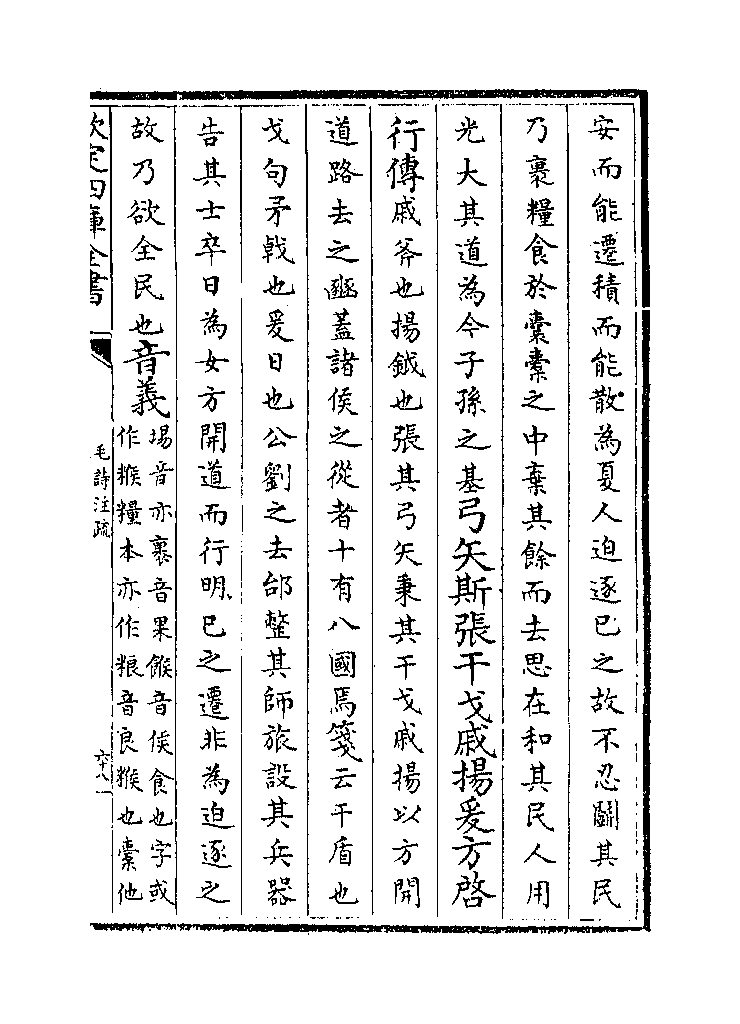 安而能遷積而能散為夏人迫逐已之故不忍鬬其民
乃裹糧食於囊橐之中棄其餘而去思在和其民人用
光大其道為今子孫之基弓矢斯張干戈戚揚爰方啓
行傳戚斧也揚鉞也張其弓矢秉其干戈戚揚以方開
道路去之豳蓋諸侯之從者十有八國焉箋云干盾也
戈句矛戟也爰曰也公劉之去邰整其師旅設其兵器
告其士卒曰為女方開道而行明已之遷非為迫逐之
故乃欲全民也音義
埸音亦裹音果餱音侯食也字或
作糇糧本亦作粮音良糇也橐他
欽定四庫全書
毛詩注疏